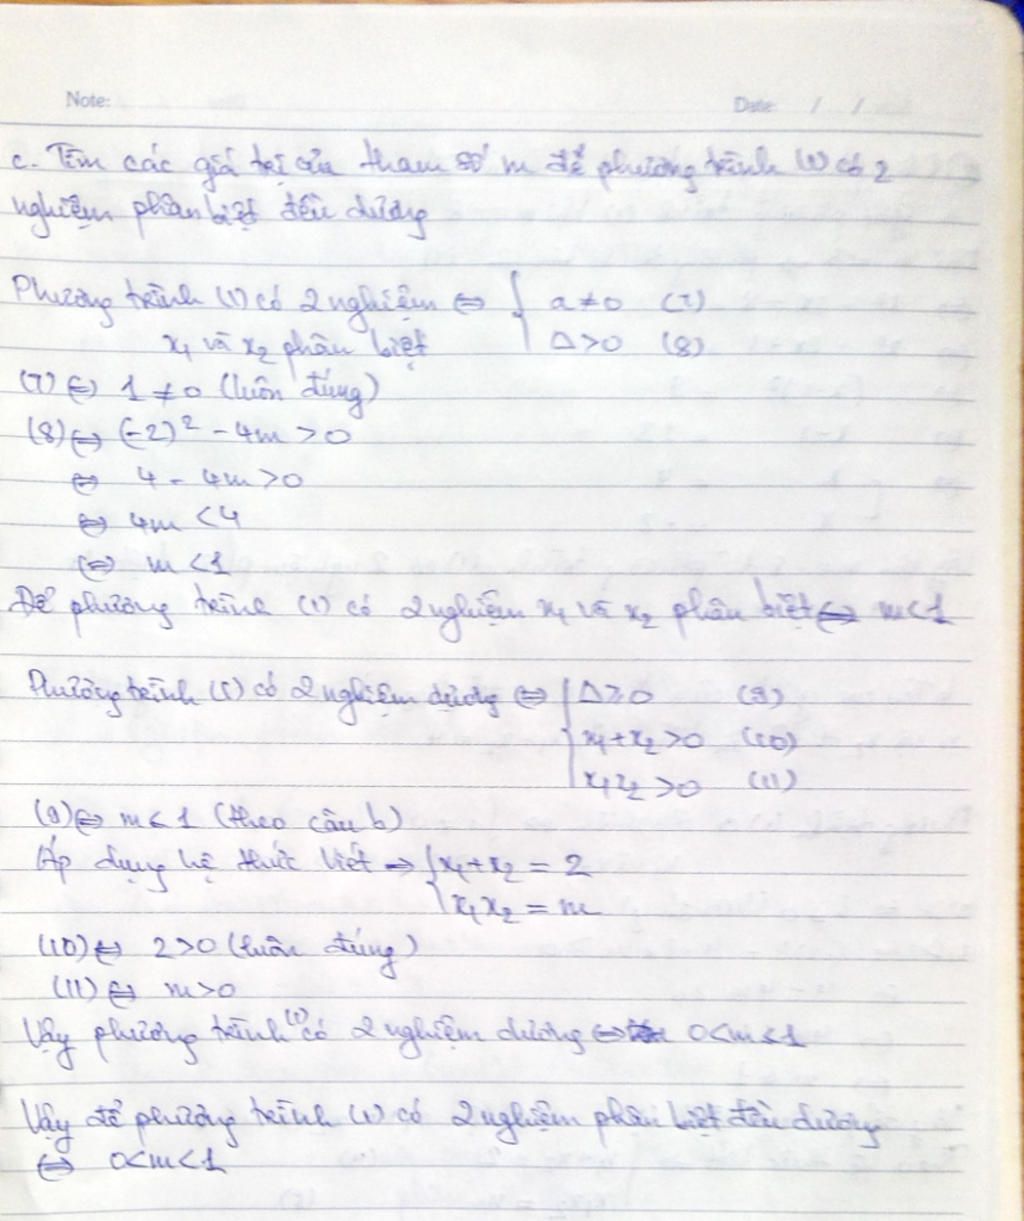 Note:
Date: / /
c. Tìm các giá trị của tham số m để phương trình (1) có 2
nghiệm phân biệt đều dương
Phương trình (1) có 2 nghiệm ⇔ { a ≠ 0 (7)
x₁ và x₂ phân biệt Δ > 0 (8)
(7) ⇔ 1 ≠ 0 (luôn đúng)
(8) ⇔ (-2)² - 4m > 0
⇔ 4 - 4m > 0
⇔ 4m < 4
⇔ m < 1
Để phương trình (1) có 2 nghiệm x₁ và x₂ phân biệt ⇔ m < 1
Phương trình (1) có 2 nghiệm dương ⇔ { Δ ≥ 0 (9)
x₁ + x₂ > 0 (10)
x₁x₂ > 0 (11)
(9) ⇔ m ≤ 1 (theo câu b)
Áp dụng hệ thức Viét ⇒ { x₁ + x₂ = 2
x₁x₂ = m
(10) ⇔ 2 > 0 (luôn đúng)
(11) ⇔ m > 0
Vậy phương trình (1) có 2 nghiệm dương ⇔ 0 < m ≤ 1
Vậy để phương trình (1) có 2 nghiệm phân biệt đều dương
⇔ 0 < m < 1